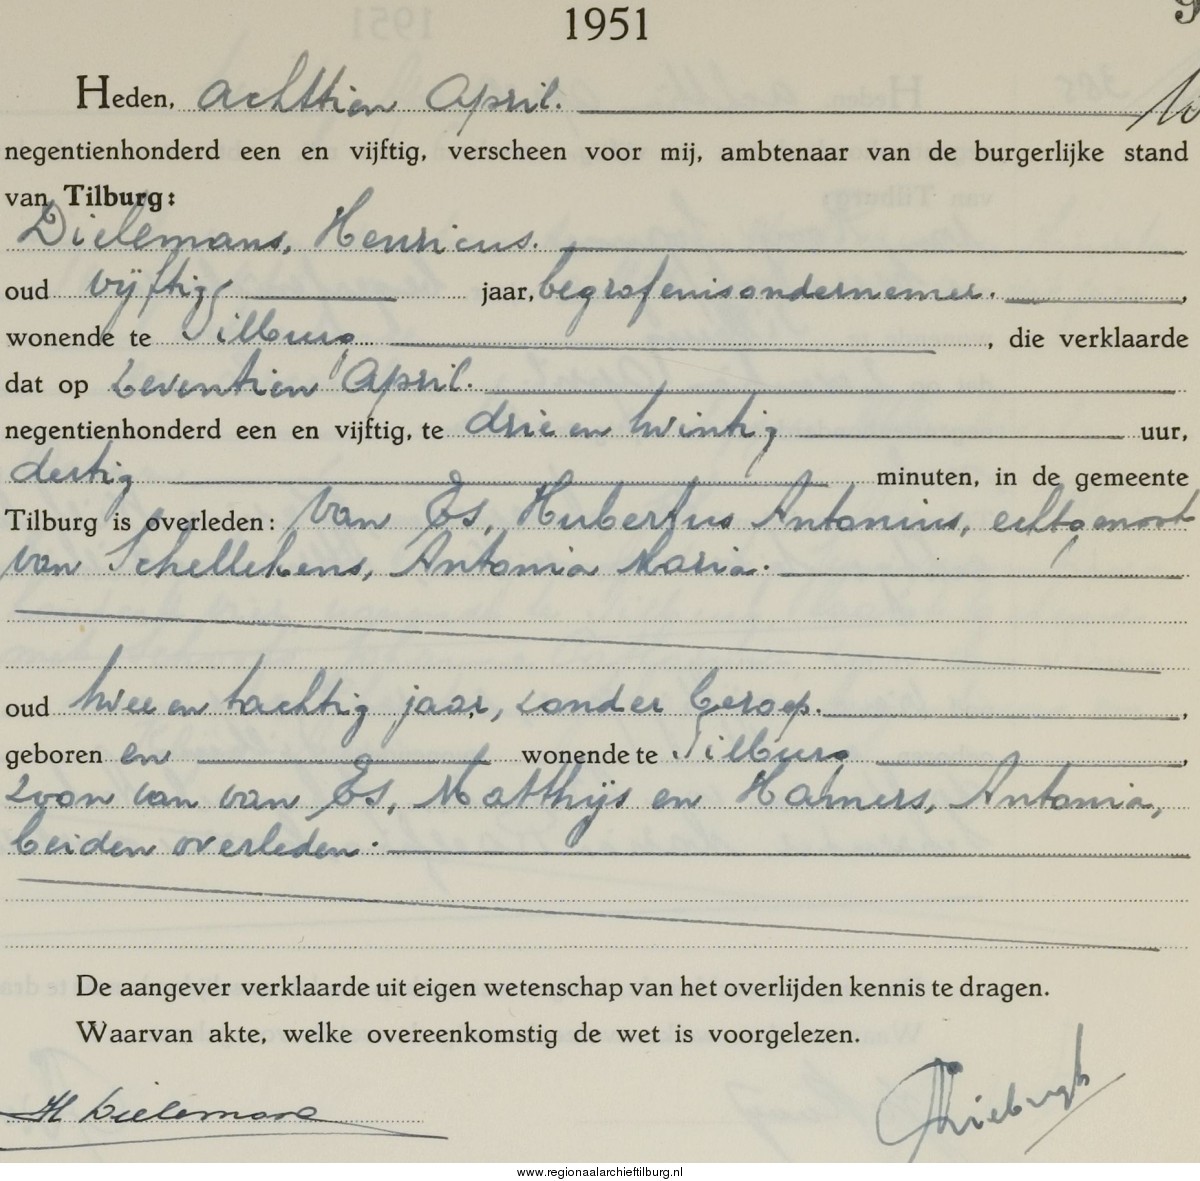 1951
Heden, achttien April.
negentienhonderd een en vijftig, verscheen voor mij, ambtenaar van de burgerlijke stand
van Tilburg:
Dielemans, Henricus.
oud vijftig jaar, begrafenisondernemer.,
wonende te Tilburg, die verklaarde
dat op zeventien April.
negentienhonderd een en vijftig, te drie en twintig uur,
dertig minuten, in de gemeente
Tilburg is overleden: van Es, Hubertus Antonius, echtgenoot
van Schellekens, Antonia Maria.
oud twee en tachtig jaar, zonder beroep.,
geboren en wonende te Tilburg,
zoon van van Es, Matthijs en Hamers, Antonia,
beiden overleden.
De aangever verklaarde uit eigen wetenschap van het overlijden kennis te dragen.
Waarvan akte, welke overeenkomstig de wet is voorgelezen.
H Dielemans
www.regionaalarchieftilburg.nl